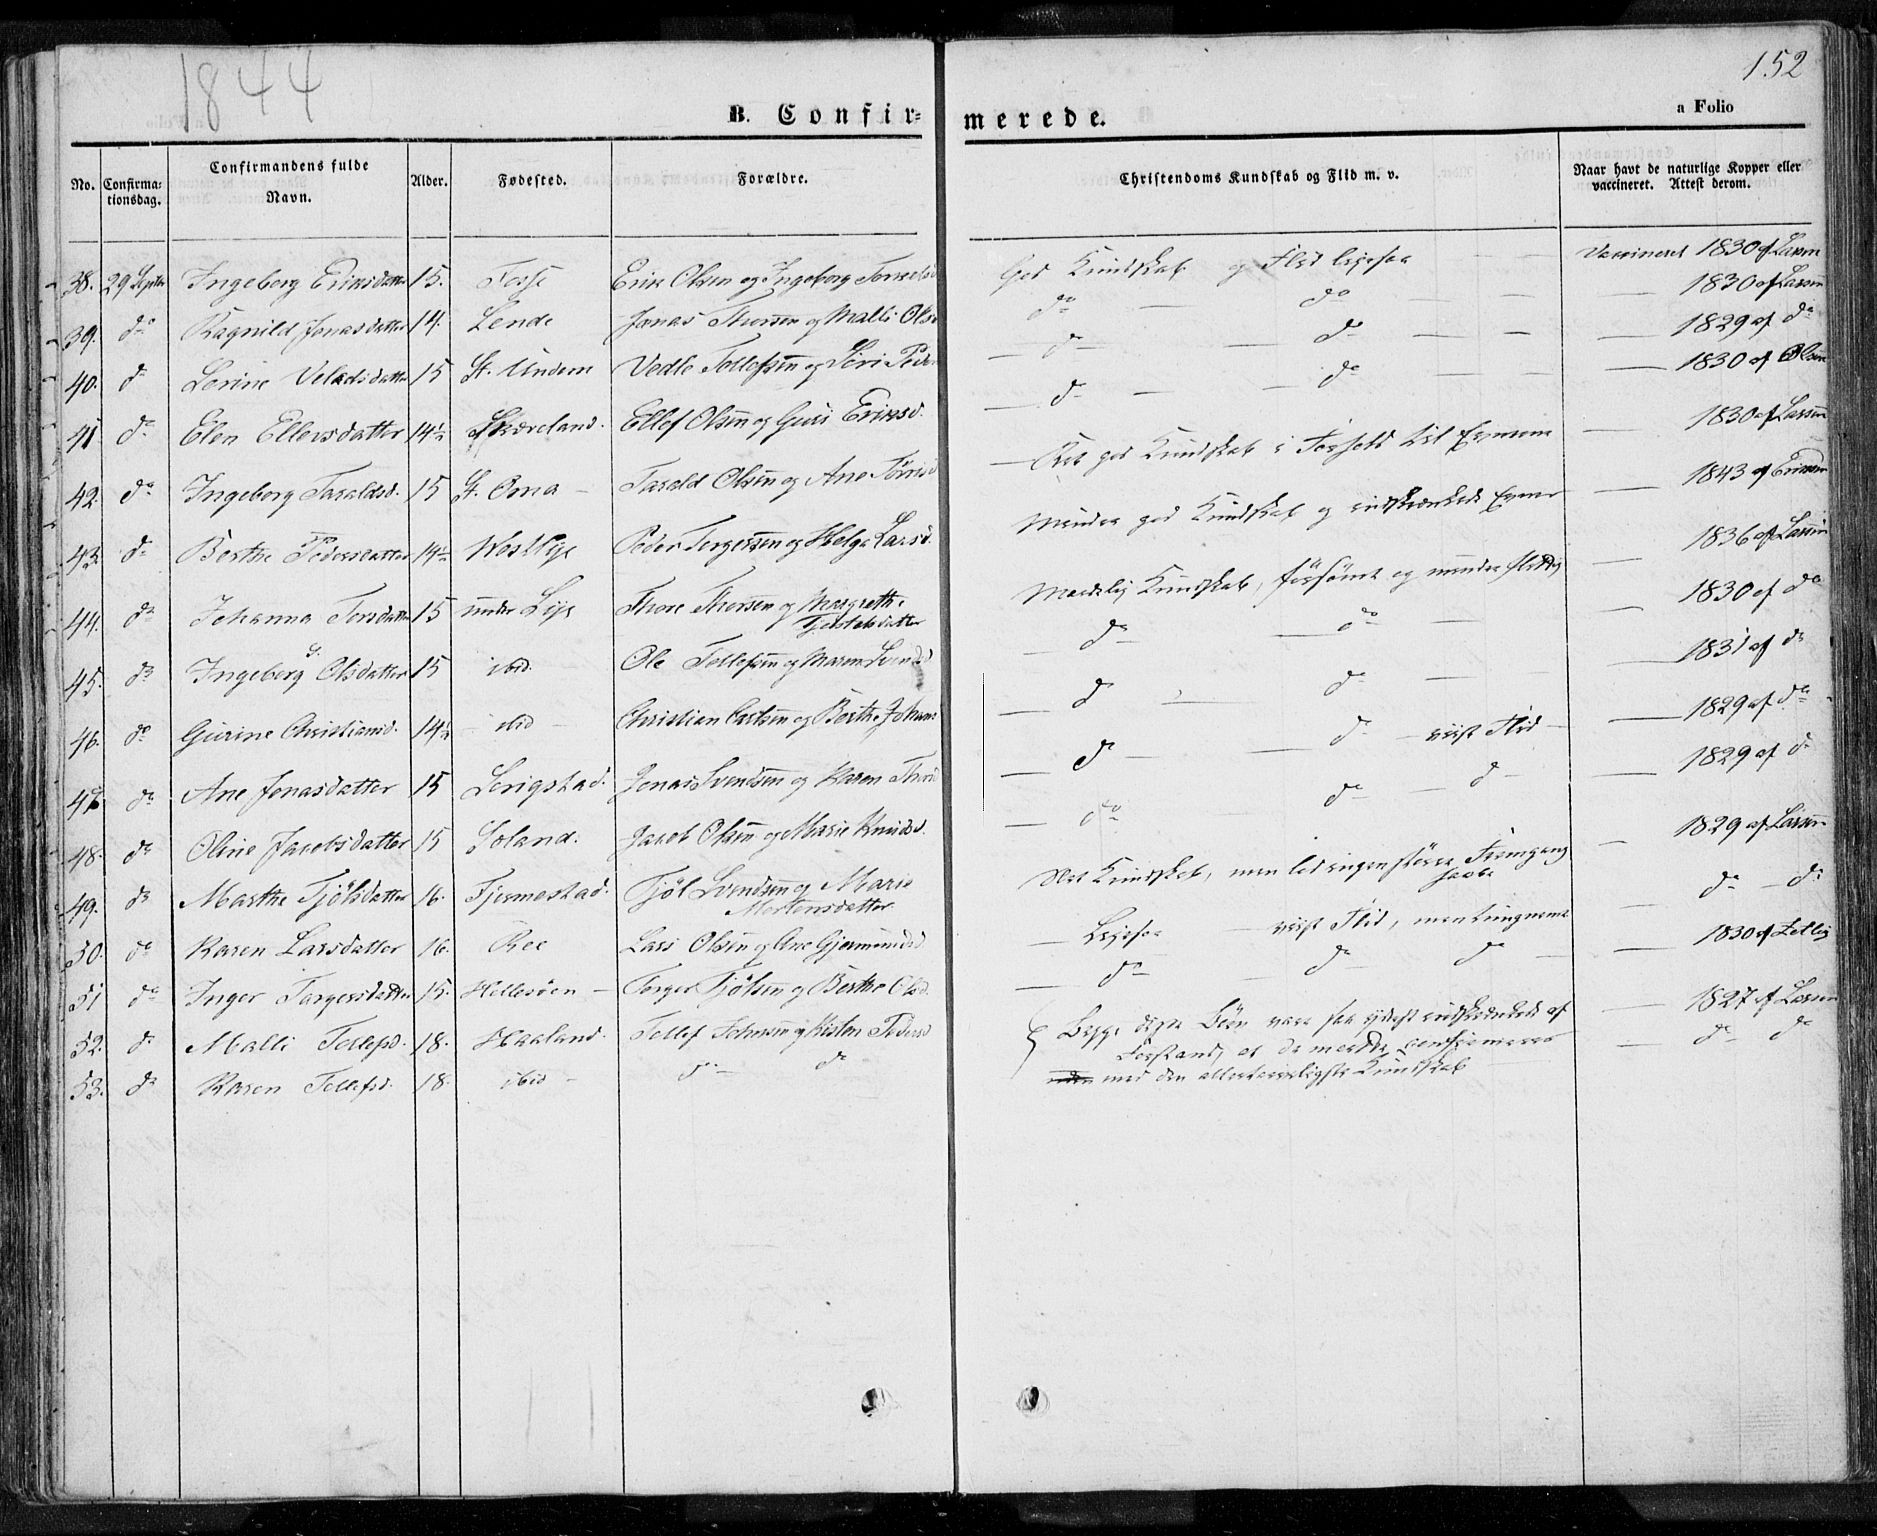 1844
152
B. Confir-
merede.
a Folio
No. Confirma-tionsdag. Confirmandens fulde Navn. Alder. Fødested. Forældre. Christendoms Kundskab og Flid m. v. Naar havt de naturlige Kopper eller vaccineret. Attest derom.
38. 29 Septbr Ingeborg Eriksdatter 15. Fosse Erik Olsen og Ingeborg God Kundskab og Flid ligesaa Vaccineret 1830 af Larsen
39. do Ragnild Jonasdatter 14. Lende Jonas Thorsen og Malli Olsd do do 1830 af Larsen
40. do Lorine Velæsdatter 15 St. Undem Vedle Tollefsen og Siri Peders do do 1829 af do
41 do Elen Ellefsdatter 14½ Skæreland. Ellef Olsen og Guri Eriksd. do do 1830 af Olsen
42. do Ingeborg Taraldsd. 15 St. Oma Tarald Olsen og Ane god Kundskab i Forhold til 1830 af Larsen
43. do Berthe Pedersdatter 14½ Peder Tergersen og Helga Larsd. Mindre god Kundskab og indskrænkede 1843 af
44. do Johanna Torsdatter 15 under Lije Thore Thorsen og Margrethe Maadelig Kundskab, forsömt og mindre flittig 1836 af Larsen
45. do Ingeborg Olsdatter 15 ibid. Ole Tollefsen og Maren Svends do do 1830 af do
46. do Gurine Christiansd. 14½ ibid Christian Carlsen og Berthe Johans do do 1831 af do
47. do Ane Jonasdatter 15 Serigstad. Jonas Svendsen og Karen do do viist Flid 1829 af do
48. do Oline Jacobsdatter 15 Soland. Jacob Olsen og Marie Knudsd. do do do 1829 af do
49. do Marthe Tjölsdatter 16. Tjermestad. Tjöl Svendsen og Marie Mortensdatter Kundskab, men Fremgang 1829 af Larsen
50. do Karen Larsdatter 16. Ree Lars Olsen og Ane Gjermundsd Ligesaa viist Flid, men tungnem do do
51 do Inger Targersdatter 15. Hellesöen Torger Tjölsen og Berthe Olsd. do do do 1830 af
52. do Malli Tollefsd. 18. Haaland. Tollef og Kisten Pedersd Begge disse Börn vare saa indskrænkede af 1827 af Larsen
Forstand, at de confirmeres
53. do Karen Tollefsd. 18. ibid do do med den Kundskab do do